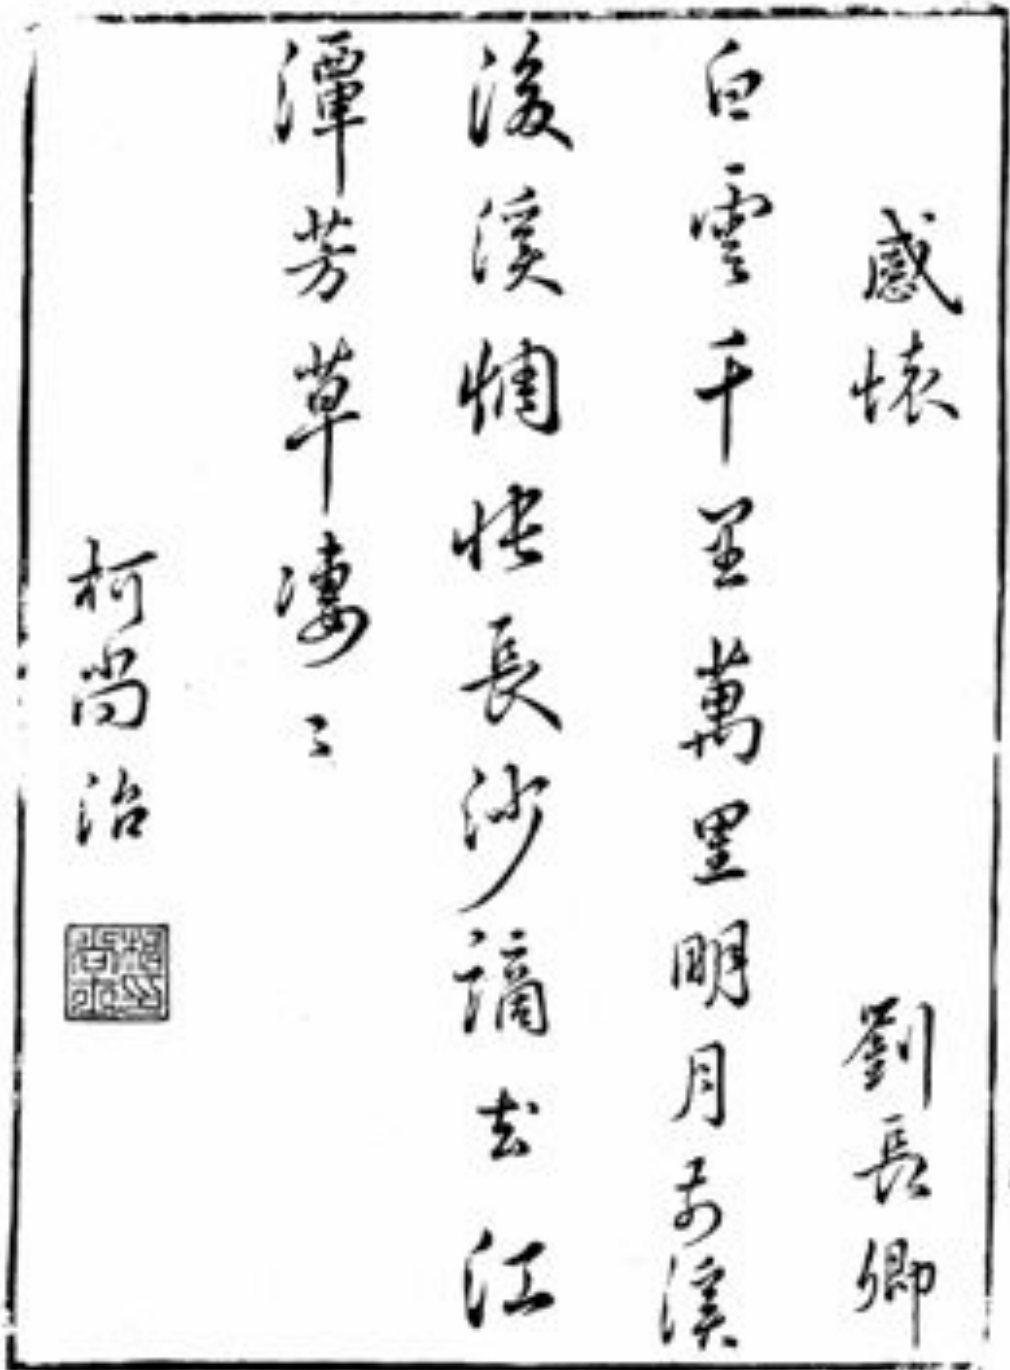 感懷 劉長卿
白雲千里萬里明月前溪
後溪惆悵長沙謫去江
潭芳草淒〻
柯尚治